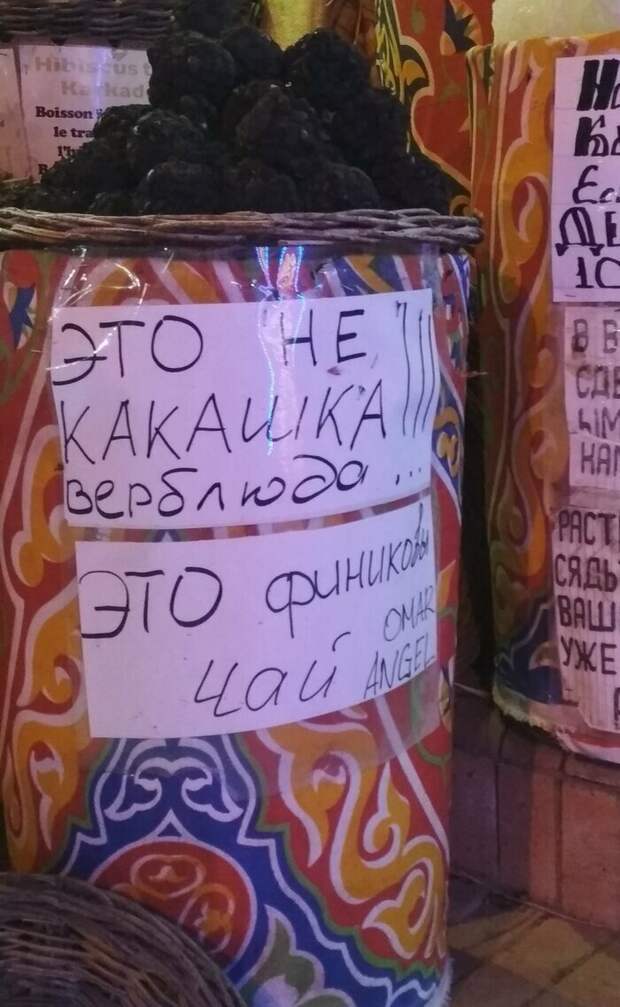 Hibiscus t
Karkad
Boisson
le tra
l'h
ЭТО НЕ
КАКАШКА !!!
верблюда...
ЭТО финиковы
чай OMAR
ANGEL
ДЕ
10
В В
СДЕ
ЫМ
НАП
РАСТ
СЯДЬ
ВАШ
УЖЕ